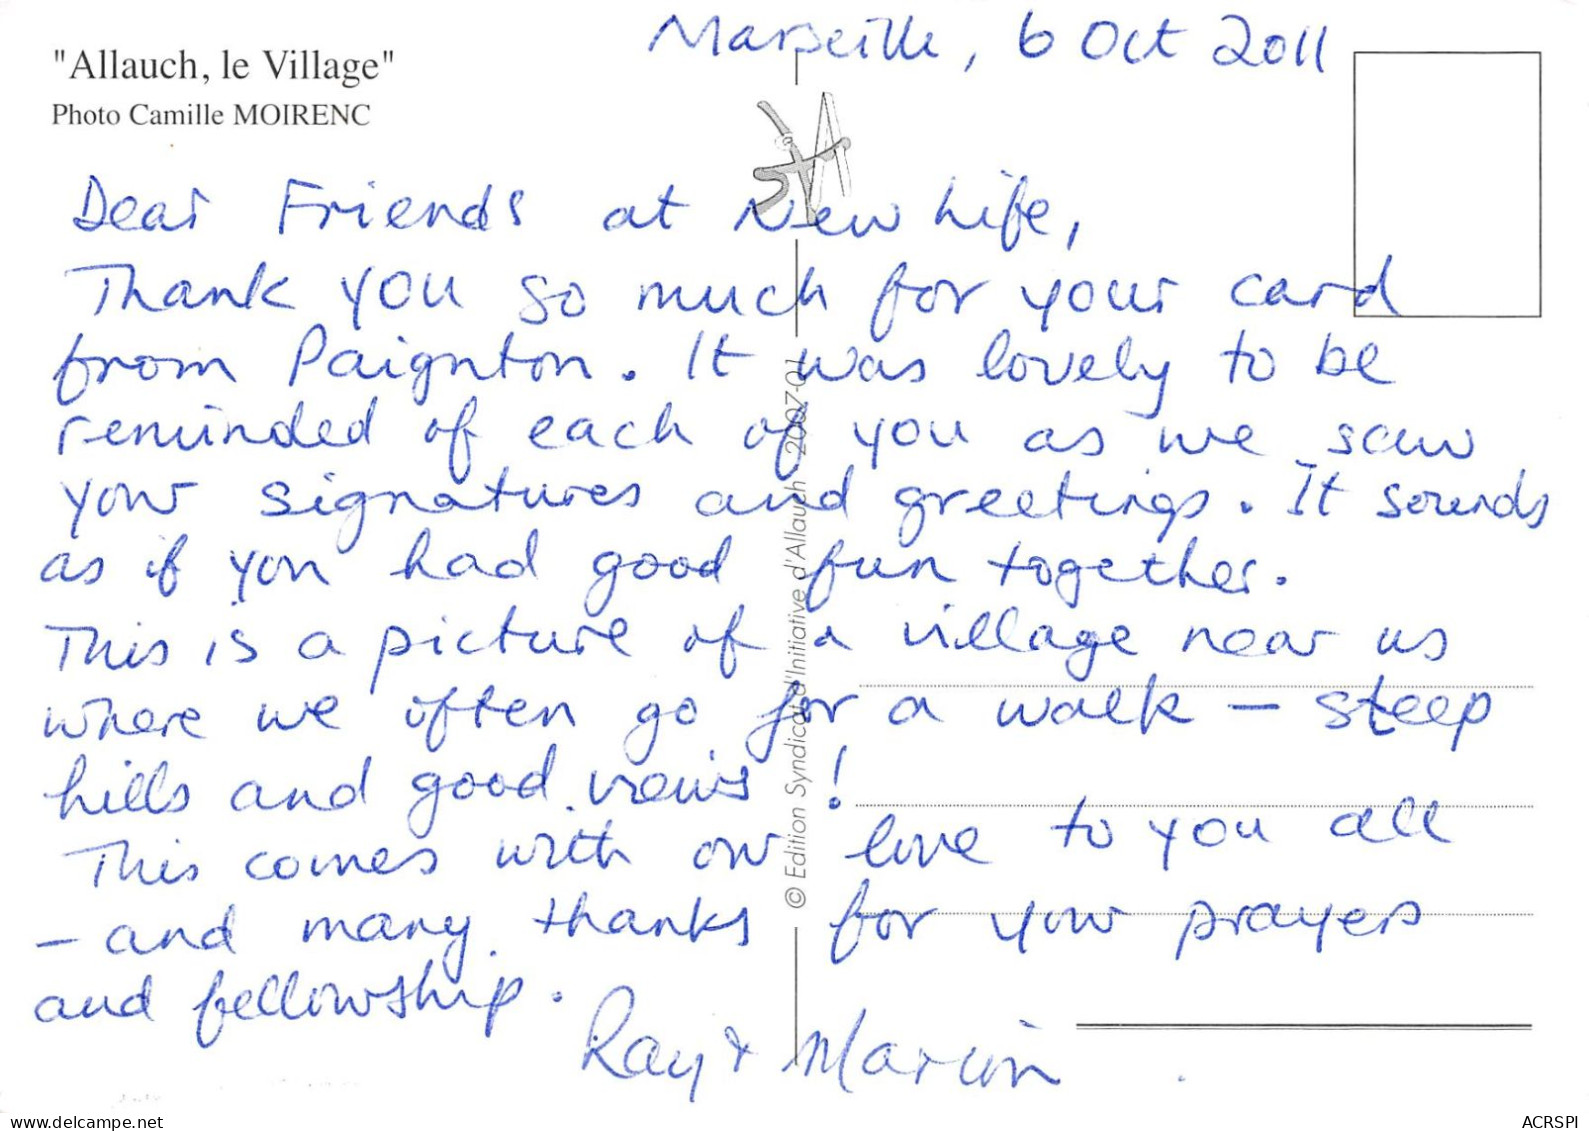 Marseille, 6 Oct 2011
"Allauch, le Village"
Photo Camille MOIRENC
Dear Friends at New Life,
Thank you so much for your card
from Paignton. It was lovely to be
reminded of each of you as we saw
your signatures and greetings. It sounds
as if you had good fun together.
This is a picture of a village near us
where we often go for a walk – steep
hills and good views !
This comes with our love to you all
– and many thanks for your prayers
and fellowship.
Ray + Marion
© Edition Syndicat d'Initiative d'Allauch 2007-01
www.delcampe.net
ACRSPI